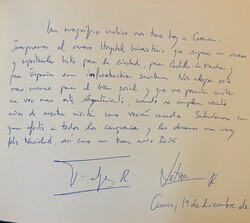 Un magnífico motivo nos trae hoy a Cuenca.
Inauguramos el nuevo Hospital Universitario que supone un nuevo
y espectacular hito para la ciudad, para Castilla-La Mancha y
para España en infraestructura sanitaria. Nos alegra este
nuevo avance para el bien social y que nos permite visitar
una vez más este Ayuntamiento, cuando se cumplen veinte
años de nuestra visita como recién casados. Saludamos con
gran afecto a todos los conquenses y les deseamos una muy
feliz Navidad, así como un buen año 2025
Felipe R. Letizia R.
Cuenca, 19 de diciembre de